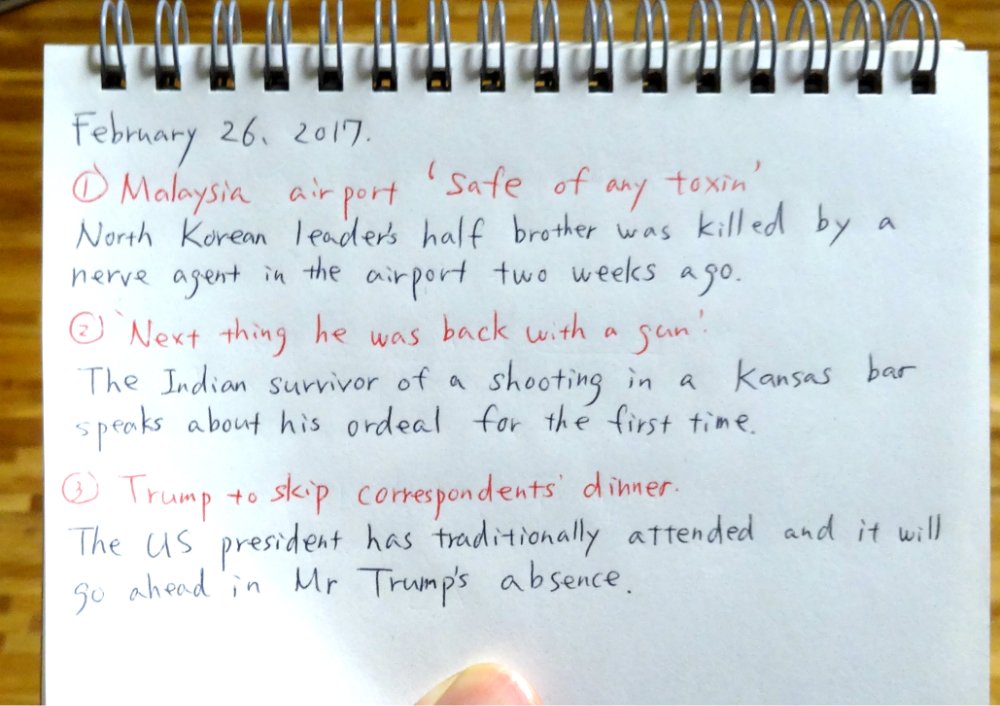 February 26, 2017.
① Malaysia airport 'Safe of any toxin'
North Korean leader's half brother was killed by a
nerve agent in the airport two weeks ago.
② 'Next thing he was back with a gun'
The Indian survivor of a shooting in a Kansas bar
speaks about his ordeal for the first time.
③ Trump to skip correspondents' dinner.
The US president has traditionally attended and it will
go ahead in Mr Trump's absence.